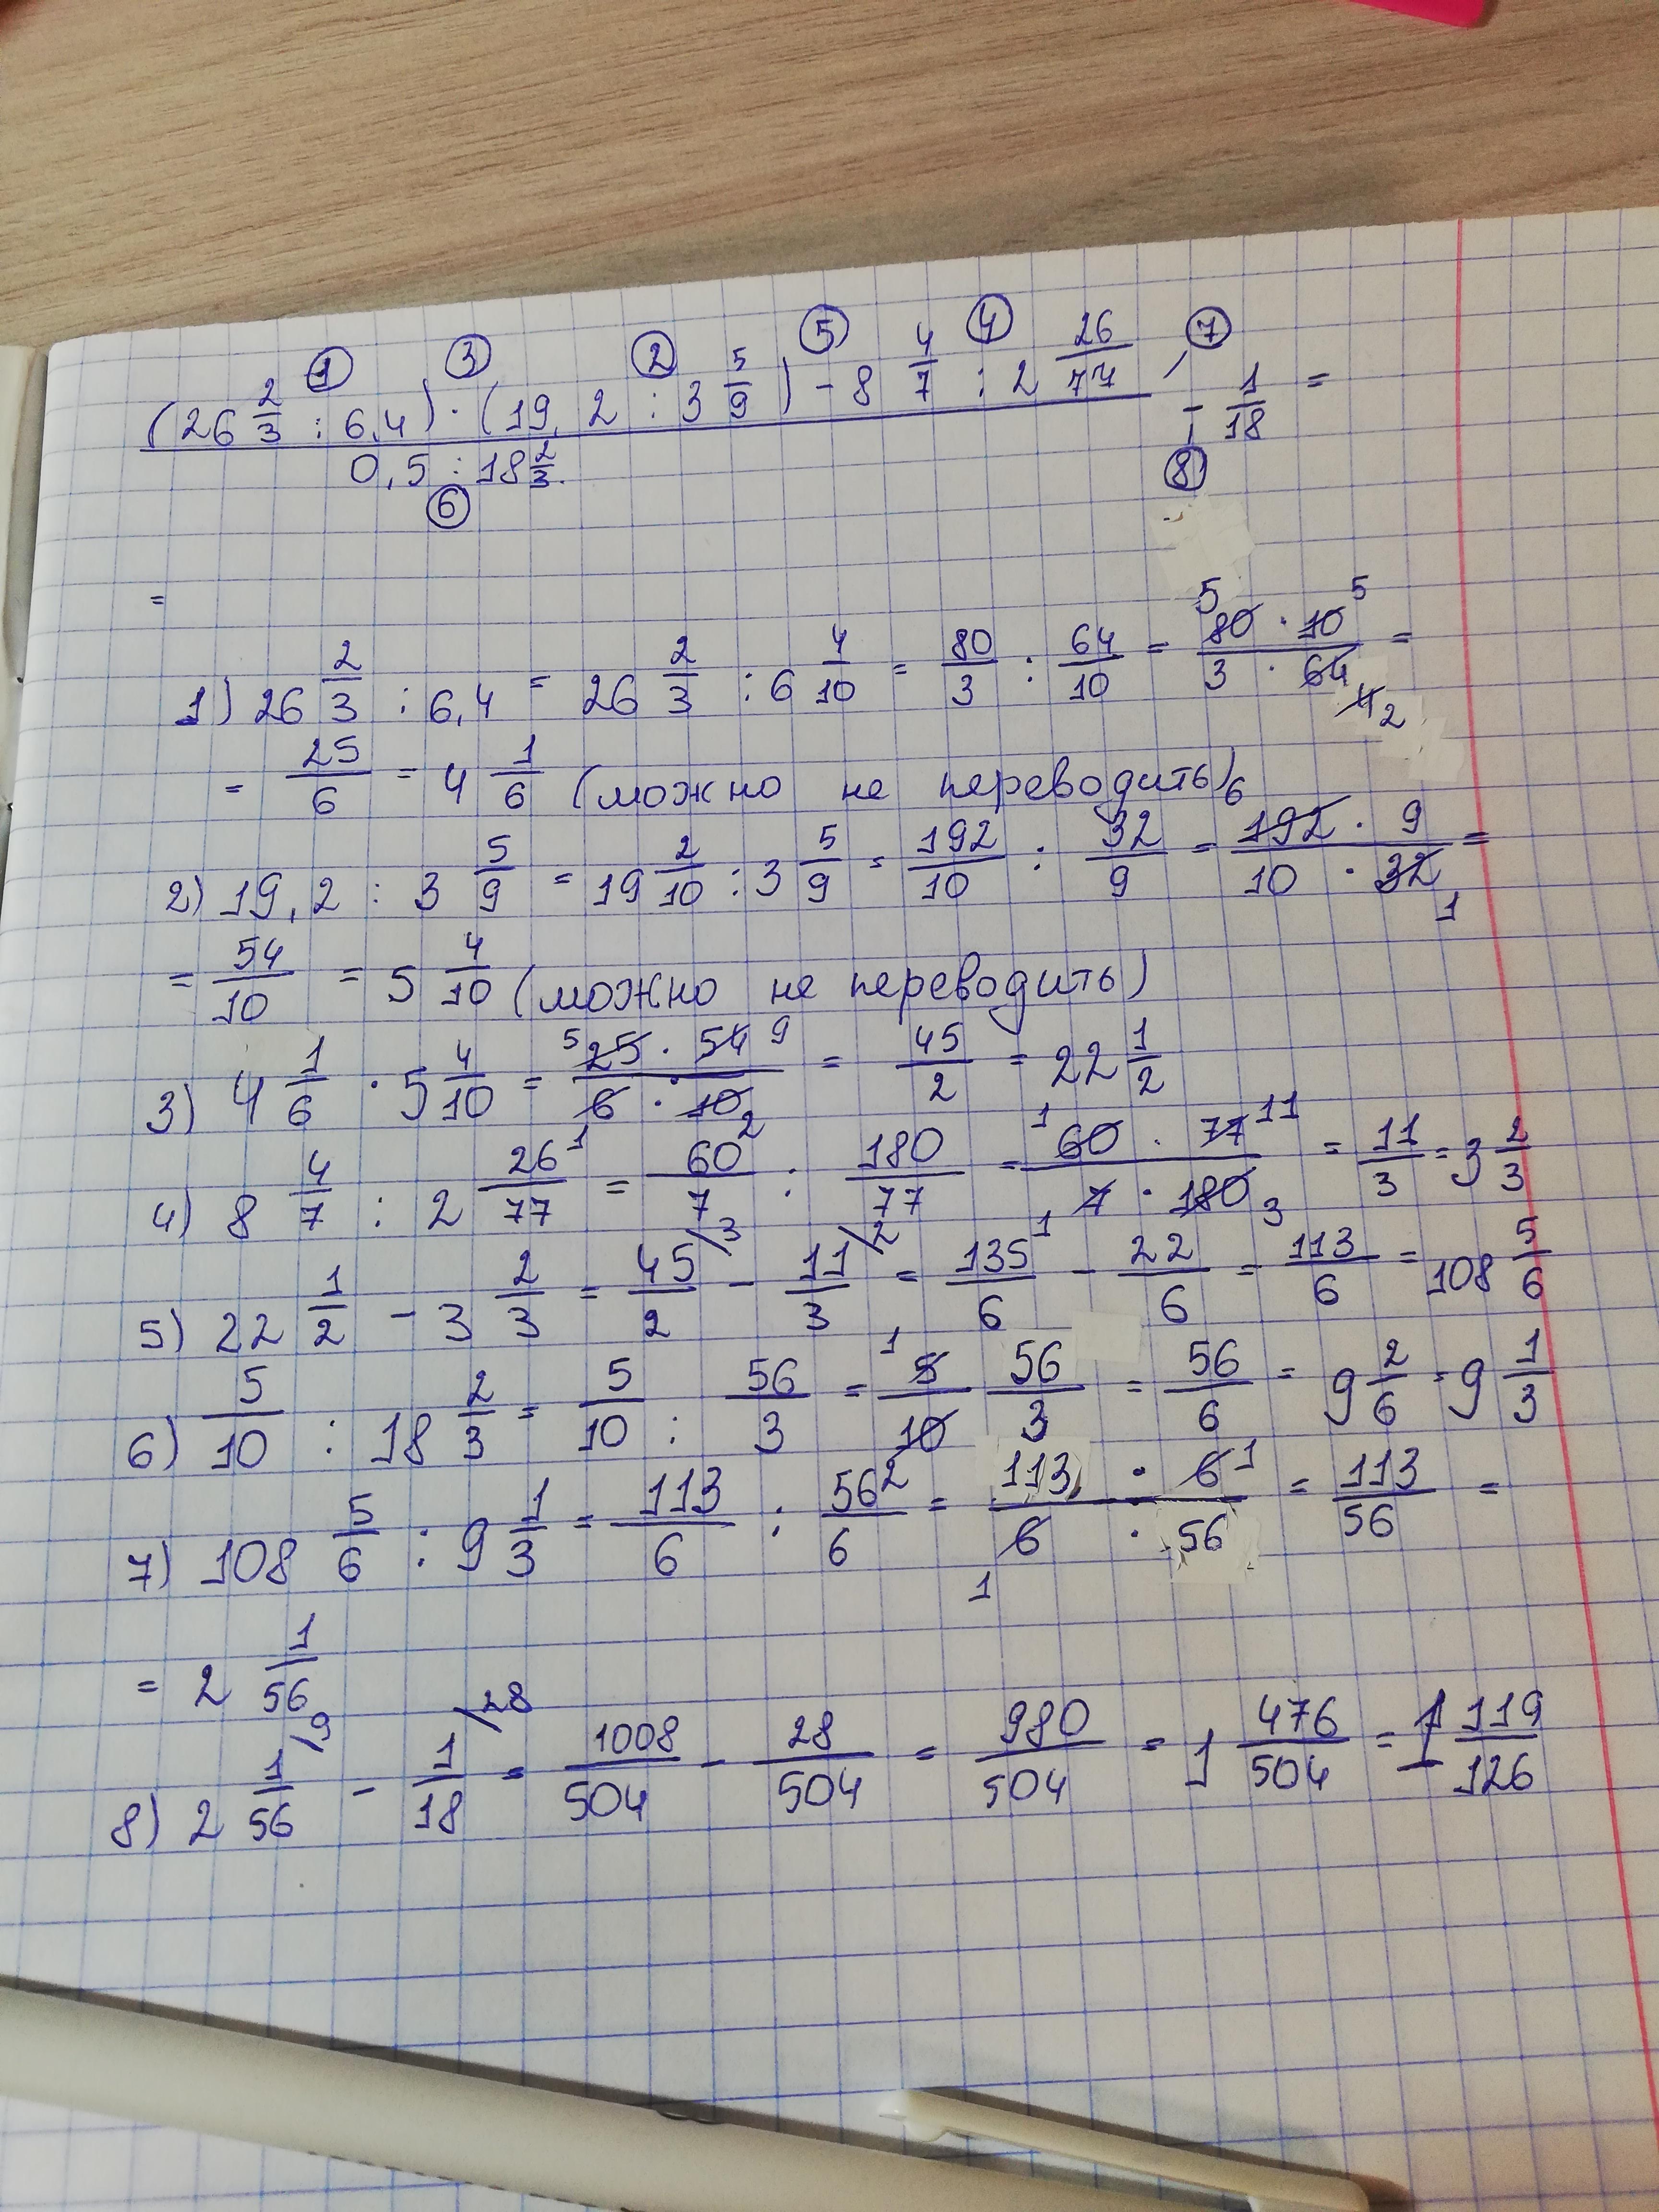 ① ③ ② ⑤ ④ ⑦
(26 2/3 : 6,4) · (19,2 : 3 5/9) - 8 4/7 : 2 26/77
- 1/18 =
0,5 : 18 2/3
⑥ ⑧
=
1) 26 2/3 : 6,4 = 26 2/3 : 6 4/10 = 80/3 : 64/10 = 5 80 · 10 5 / 3 · 64 4 2 =
= 25/6 = 4 1/6 (можно не переводить)
2) 19,2 : 3 5/9 = 19 2/10 : 3 5/9 = 192/10 : 32/9 = 6 192 · 9 / 10 · 32 1 =
= 54/10 = 5 4/10 (можно не переводить)
3) 4 1/6 · 5 4/10 = 5 25 · 54 9 / 1 6 · 10 2 = 45/2 = 22 1/2
4) 8 4/7 : 2 26/77 = 60/7 : 180/77 = 1 60 · 77 11 / 1 7 · 180 3 = 11/3 = 3 2/3
5) 22 1/2 - 3 2/3 = 45/2 /3 - 11/3 /2 = 135/6 - 22/6 = 113/6 = 108 5/6
6) 5/10 : 18 2/3 = 5/10 : 56/3 = 1 5/10 2 56/3 = 56/6 = 9 2/6 = 9 1/3
7) 108 5/6 : 9 1/3 = 113/6 : 56/6 = 113 · 6 1 / 6 1 · 56 = 113/56 =
= 2 1/56
8) 2 1/56 /9 - 1/18 /28 = 1008/504 - 28/504 = 980/504 = 1 476/504 = 1 119/126